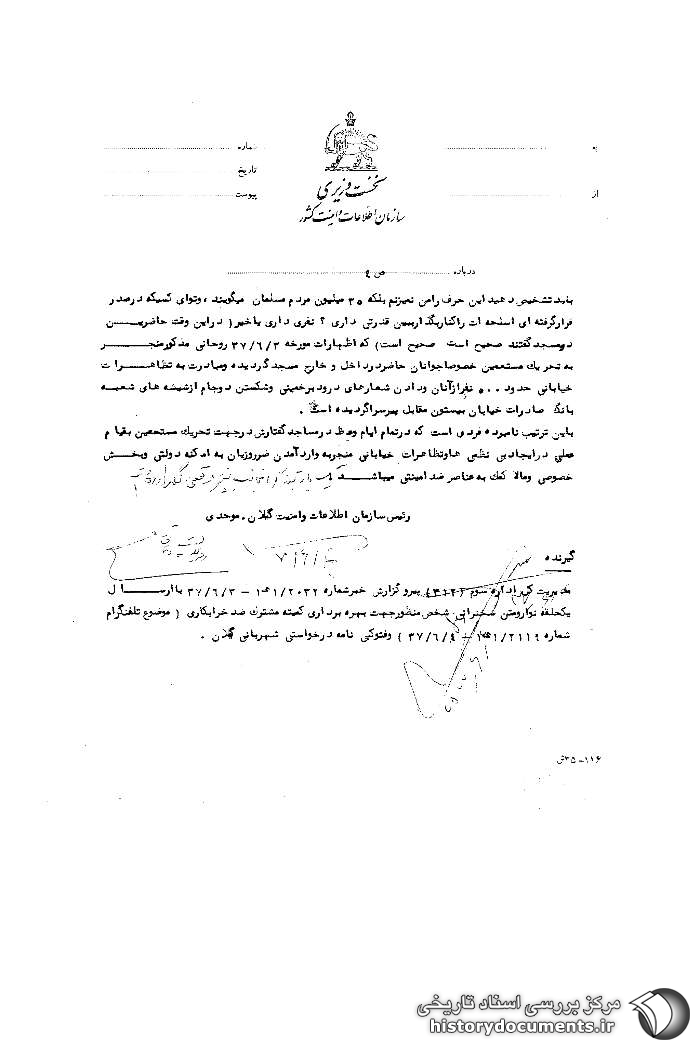 به
شماره
تاریخ
از
پیوست
نخست وزیری
سازمان اطلاعات و امنیت کشور
درباره ص ٤
باید تشخیص دهید این حرف رامن نمیزنم بلکه ۳۵ میلیون مردم مسلمان میگویند ، وتوای کسیکه درصدر
قرارگرفته ای اسلحه ات راکناربگذارببین قدرتی داری ؟ نفری داری یاخیر( دراین وقت حاضریـــن
درمسجد گفتند صحیح است صحیح است) که اظهارات مورخه ۳۷/۶/۲ روحانی مذکورمنجـــــر
به تحریک مستمعین خصوصاجوانان حاضردرداخل و خارج مسجد گردیده ومبادرت به تظاهـــرات
خیابانی حدود ۵۰۰ نفرازآنان ودادن شعارهای درود برخمینی وشکستن دوجام ازشیشه های شعبـــه
بانک صادرات خیابان بیستون مقابل پیرسراگردیده است .
باین ترتیب نامبرده فردی است که درتمام ایام وعظ درمساجد گفتارش درجهت تحریک مستمعین بقیام
عملی درایجادبی نظمی هاوتظاهرات خیابانی منجربه واردآمدن ضرروزیان به امکنه دولتی وبخش
خصوصی ومالا کمک به عناصر ضد امنیتی میباشـــد
رئیس سازمان اطلاعات وامنیت گیلان . موحدی
۷/۶/۴
گیرنده
مدیریت کل اداره سوم (۳۱۲) پیرو گزارش خبرشماره ۱/۲۰۳۲ ه‍ ۱ - ۳۷/۶/۳ باارســـال
یکحلقه نوارومتن سخنرانی شخص منظورجهت بهره برداری کمیته مشترک ضد خرابکاری ( موضوع تلفنگرام
شماره ۱/۲۱۱۹ ه‍ ۱ - ۳۷/۶/۹ ) وفتوکپی نامه درخواستی شهربانی گیلان .
۱۱۶-۳۵ش
مرکز بررسی اسناد تاریخی
historydocuments.ir